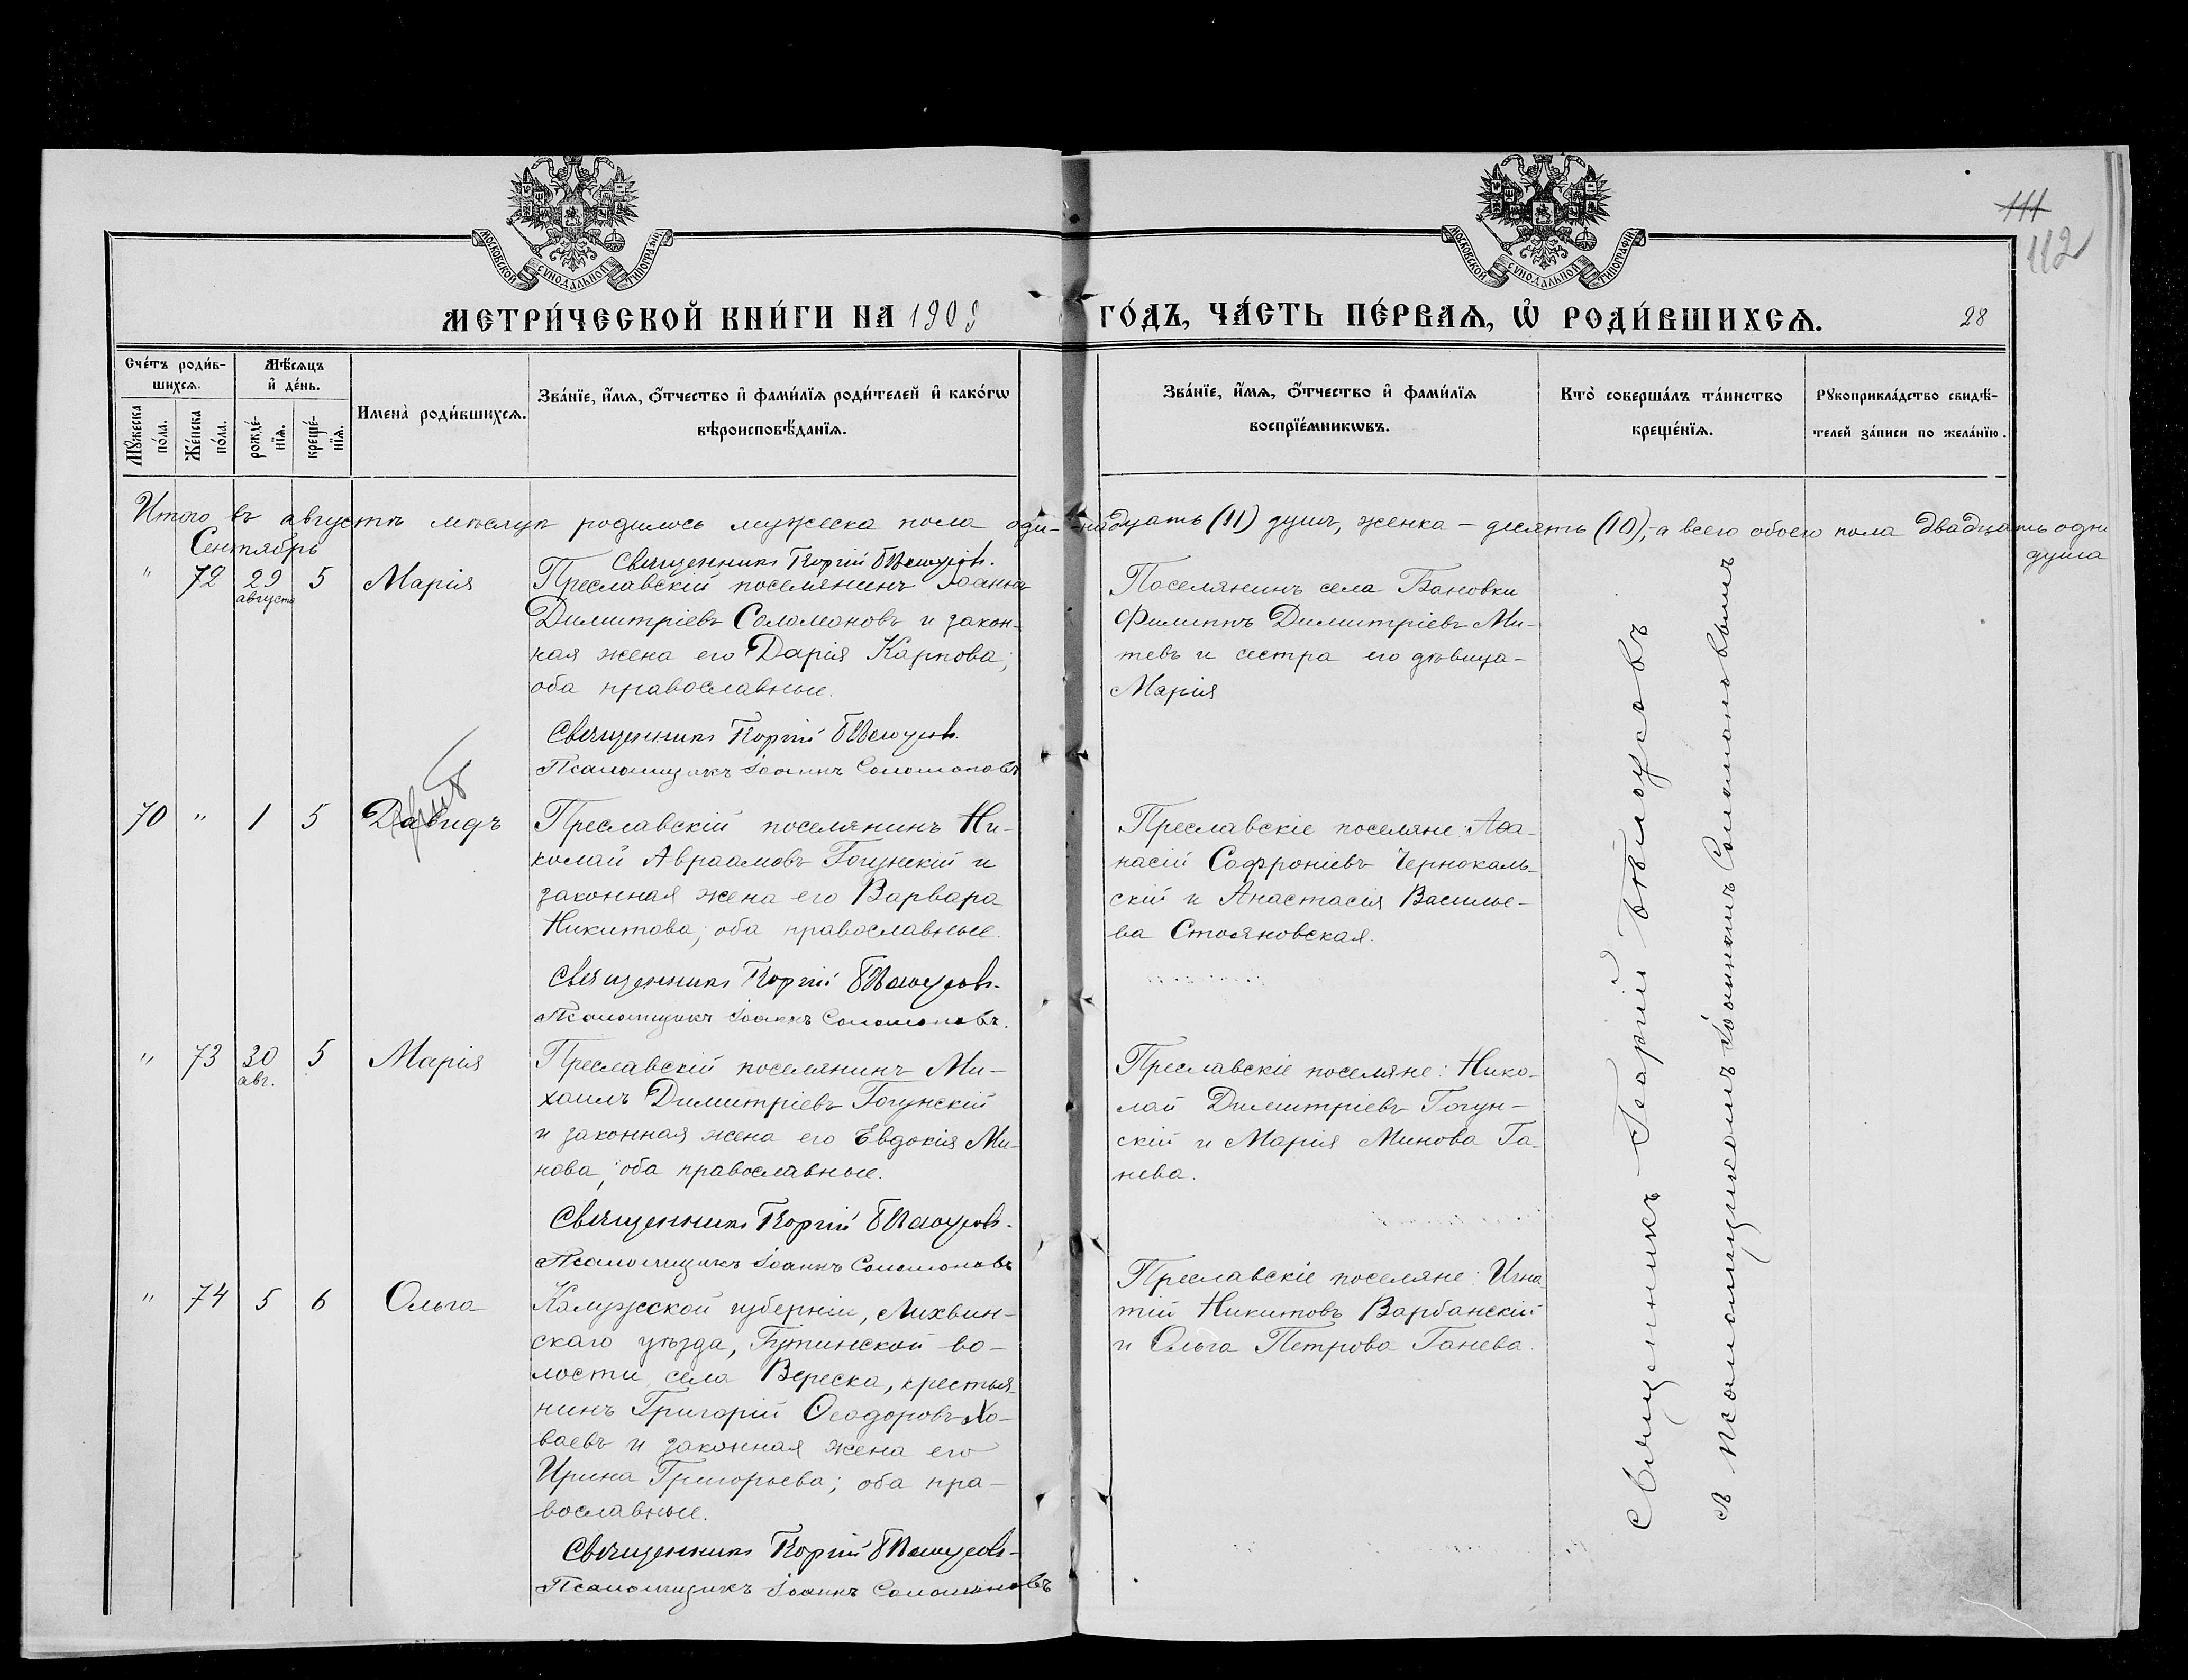 МОСКОВСКОЙ СѴНОДАЛЬНОЙ ТИПОГРАФІИ
МОСКОВСКОЙ СѴНОДАЛЬНОЙ ТИПОГРАФІИ
111
112
МЕТРИ́ЧЕСКОЙ КНИ́ГИ НА 1908 ГО́ДЪ, ЧА́СТЬ ПЕ́РВАѦ, Ѡ҆ РОДИ́ВШИХСѦ.
28
Сче́тъ роди́в-
шихсѧ.
Мѣ́сѧцъ
и҆ де́нь.
Мꙋ́жеска
по́ла.
Же́нска
по́ла.
рожде́-
нїѧ.
креще́-
нїѧ.
Имена̀ роди́вшихсѧ.
Зва́нїе, и҆́мѧ, ѻ҆́тчество и҆ фами́лїѧ роди́телей и҆ како́гѡ
вѣроисповѣ́данїѧ.
Зва́нїе, и҆́мѧ, ѻ҆́тчество и҆ фами́лїѧ
воспрїе́мникѡвъ.
Кто̀ соверша́лъ та́инство
креще́нїѧ.
Рꙋкоприкла́дство свидѣ́-
телей за́писи по жела́нїю.
Итого въ августѣ мѣсяцѣ родилось мужеска пола оди-надцать (11) душъ, женска – десять (10), а всего обоего пола двадцать одна
душа
Сентябрь
Священникъ Георгій Бѣлоусовъ.
" 72 29 августа 5 Марія
Преславскій поселянинъ Іоаннъ
Димитріевъ Соломоновъ и закон-
ная жена его Дарія Карпова;
оба православные.
Священникъ Георгій Бѣлоусовъ.
Псаломщикъ Іоаннъ Соломоновъ
Поселянинъ села Бановки
Филиппъ Димитріевъ Ми-
тевъ и сестра его дѣвица –
Марія
70 " 1 5 Давидъ
Преславскій поселянинъ Ни-
колай Авраамовъ Гогунскій и
законная жена его Варвара
Никитова; оба православные.
Священникъ Георгій Бѣлоусовъ.
Псаломщикъ Іоаннъ Соломоновъ.
Преславскіе поселяне: Аѳа-
насій Софроніевъ Чернокаль-
скій и Анастасія Василье-
ва Стояновская.
" 73 30 авг. 5 Марія
Преславскій поселянинъ Ми-
хаилъ Димитріевъ Гогунскій
и законная жена его Евдокія Ми-
нова; оба православные.
Священникъ Георгій Бѣлоусовъ.
Псаломщикъ Іоаннъ Соломоновъ
Преславскіе поселяне: Нико-
лай Димитріевъ Гогун-
скій и Марія Минова Га-
нева.
" 74 5 6 Ольга
Калужской губерніи, Лихвин-
скаго уѣзда, Бутинской во-
лости, села Вереска, крестья-
нинъ Григорій Ѳеодоровъ Хо-
ваевъ и законная жена его
Ирина Григорьева; оба пра-
вославные.
Священникъ Георгій Бѣлоусовъ.
Псаломщикъ Іоаннъ Соломоновъ
Преславскіе поселяне: Игна
тій Никитовъ Варбанскій
и Ольга Петрова Ганева.
Священникъ Георгій Бѣлоусовъ
съ псаломщикомъ Іоанномъ Соломоновымъ